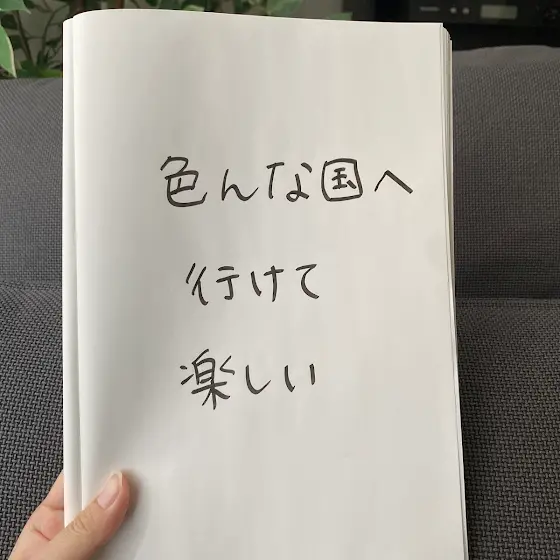 色んな国へ
行けて
楽しい